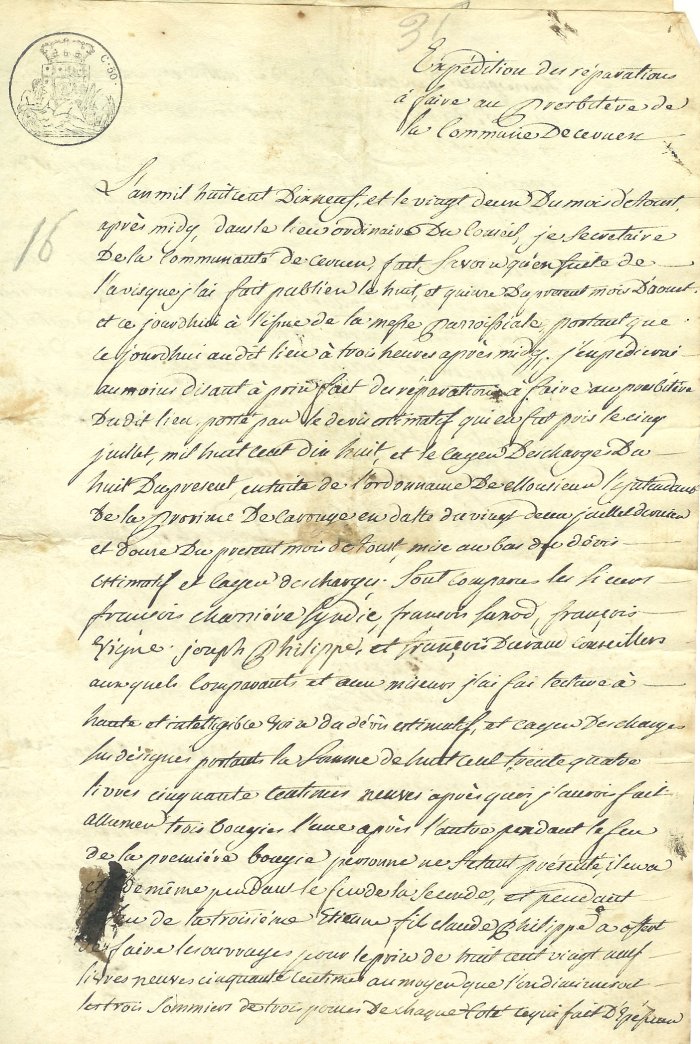 36
C. 50.
Expédition des réparations
à faire au Presbitère de
la Commune De cervens
16
L'an mil huit cent Dix neuf, et le vingt deux Du mois d'Aoust,
après midy, dans le lieu ordinaire Du Conseil, je Secretaire
De la Communauté de cervens, fait Savoir qu'en suite de
l'avis que j'ai fait publier le huit, et quinze Du present mois D'aoust
et ce jourdhui à l'issue de la messe Parroissiale, portant que
ce jourdhui au dit lieu à trois heures après midy. j'expedierai
au moins disant à prix fait des réparations à faire au presbitère
Du dit lieu, porté par le devis estimatif qui en fut pris le cinq
juillet, mil huit cent dix huit, et le cayer Des charges Du
huit Du present, ensuite de l'ordonnance De Monsieur l'intendant
De la Province De Carouge en datte du vingt deux juillet dernier
et douze Du present mois d'Aoust, mise au bas du dévis
estimatif et cayer des charges. Sont comparus les Sieurs
françois charrière Syndic, françois Junod, françois
Vigne joseph Philippe, et françois Duraud Conseillers
aux quels Comparants et aux miseurs j'ai fai lecture à
haute et intelligible voix du dévis estimatif, et cayer Des charges
sus désignés portants la Somme de huit cent trente quatre
livres cinquante Centimes neuves après quoi j'aurois fait
allumer trois bougies l'une après l'autre pendant le feu
de la première bougie personne ne s'etant présenté, il en a
eté de même pendant le feu de la Seconde, et pendant
le feu de la troisième Etienne fils claude Philippe a offert
de faire les ouvrages pour le prix de huit cent vingt neuf
livres neuves cinquante Centimes au moyen que l'on diminueroit
les trois Sommiers de trois pouces De chaque Coté ce qui fait D'Epesseur